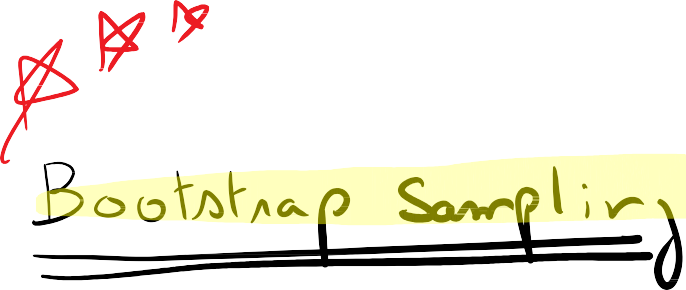 Bootstrap Sampling